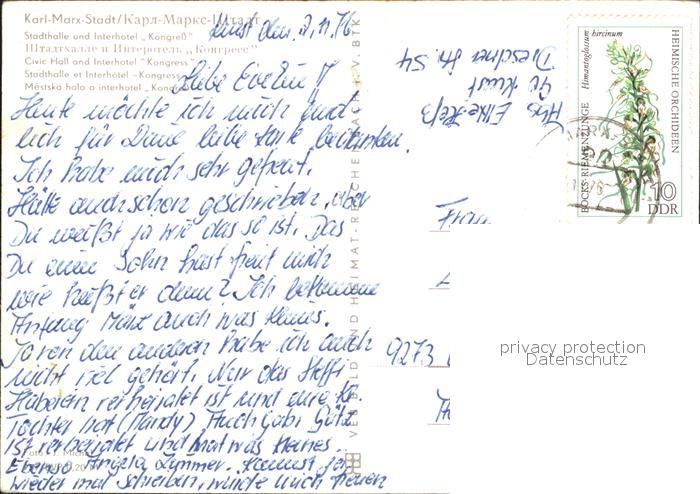 Karl-Marx-Stadt/Карл-Маркс-Штадт
Stadthalle und Interhotel „Kongreß"
Штадтхалле и Интеротель „Конгресс"
Civic Hall and Interhotel "Kongress"
Stadthalle et Interhôtel «Kongress»
Městská hala a interhotel „Kongreß"
Kunst den 2.11.76
Liebe Eveline!
Heute möchte ich mich
lich für Deine liebe Karte bedanken.
Ich habe mich sehr gefreut.
Hätte auch schon geschrieben, aber
Du weißt ja wie das so ist. Das
Du einen Sohn hast freut mich
wie heißt er denn? Ich bekomme
Anfang März auch was kleines.
Ja von den anderen habe ich auch
nicht viel gehört. Nur das Steffi
verheiratet ist und eine kl.
Tochter hat (Mandy) Auch Gabi Götz
ist verheiratet und hat was kleines
Ebenso Angela Zimmer. Kannst ja
wieder mal schreiben, würde mich freuen
Abs. Elke Heß
90 Kunst
Dresdner Str. 54
Frau
9273
VEB BILD UND HEIMAT REICHENBACH I. V. BTK
HEIMISCHE ORCHIDEEN
Himantoglossum hircinum
BOCKS-RIEMENZUNGE
10
DDR
privacy protection
Datenschutz